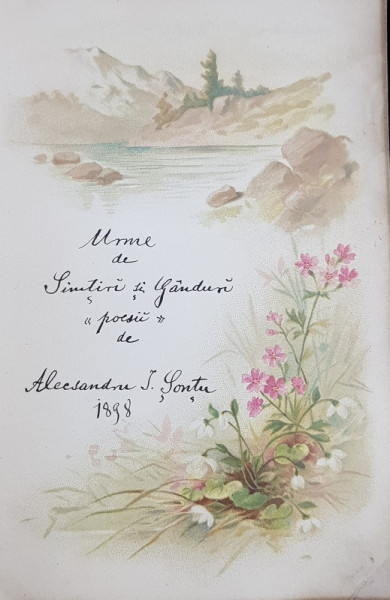 Urme
de
Simțirĭ și Gândurĭ
« poesii »
de
Alecsandru I. Șonțu
1898